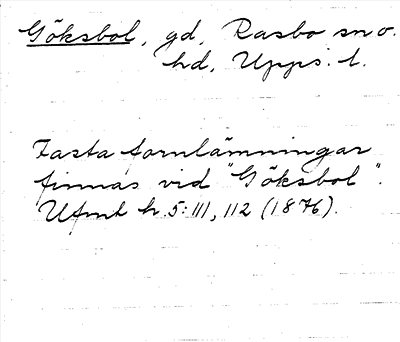 Göksbol, gd, Rasbo sn o.
hd, Upps. l.
Fasta fornlämningar
finnas vid "Göksbol".
Ufmt h. 5: 111, 112 (1876).